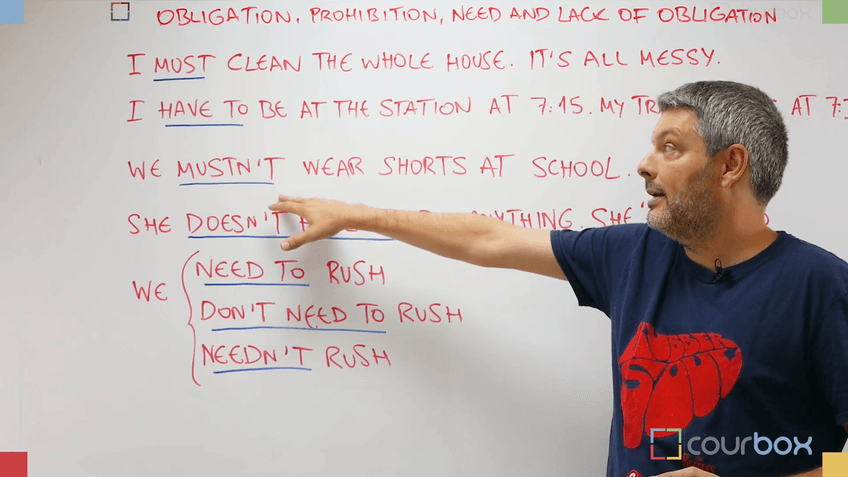 OBLIGATION, PROHIBITION, NEED AND LACK OF OBLIGATION
I MUST CLEAN THE WHOLE HOUSE. IT'S ALL MESSY.
I HAVE TO BE AT THE STATION AT 7:15. MY AT
WE MUSTN'T WEAR SHORTS AT SCHOOL.
SHE DOESN'T
WE
NEED TO RUSH
DON'T NEED TO RUSH
NEEDN'T RUSH
courbox